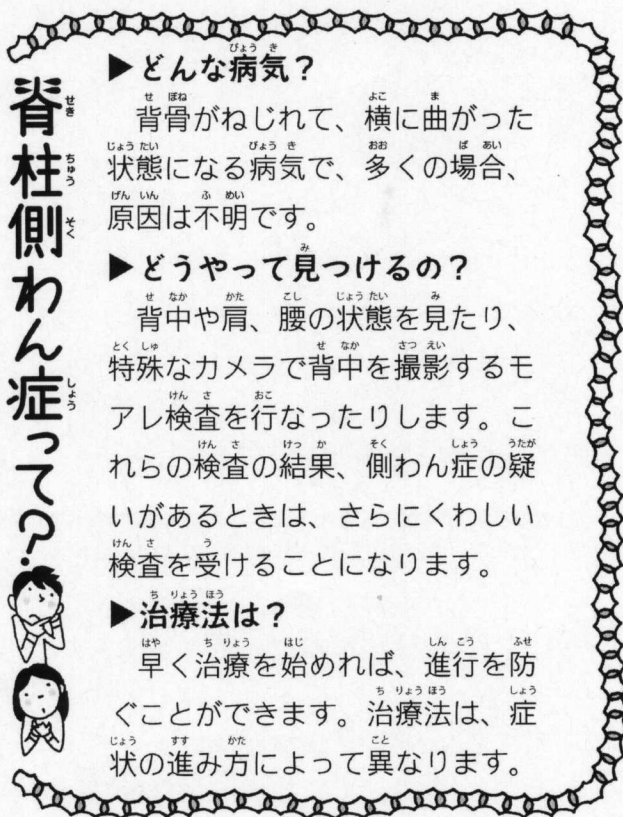 脊柱側わん症って?
▶どんな病気?
背骨がねじれて、横に曲がった
状態になる病気で、多くの場合、
原因は不明です。
▶どうやって見つけるの?
背中や肩、腰の状態を見たり、
特殊なカメラで背中を撮影するモ
アレ検査を行なったりします。こ
れらの検査の結果、側わん症の疑
いがあるときは、さらにくわしい
検査を受けることになります。
▶治療法は?
早く治療を始めれば、進行を防
ぐことができます。治療法は、症
状の進み方によって異なります。